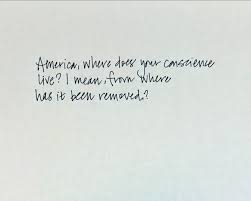 America, where does your conscience
live? I mean, from where
has it been removed?